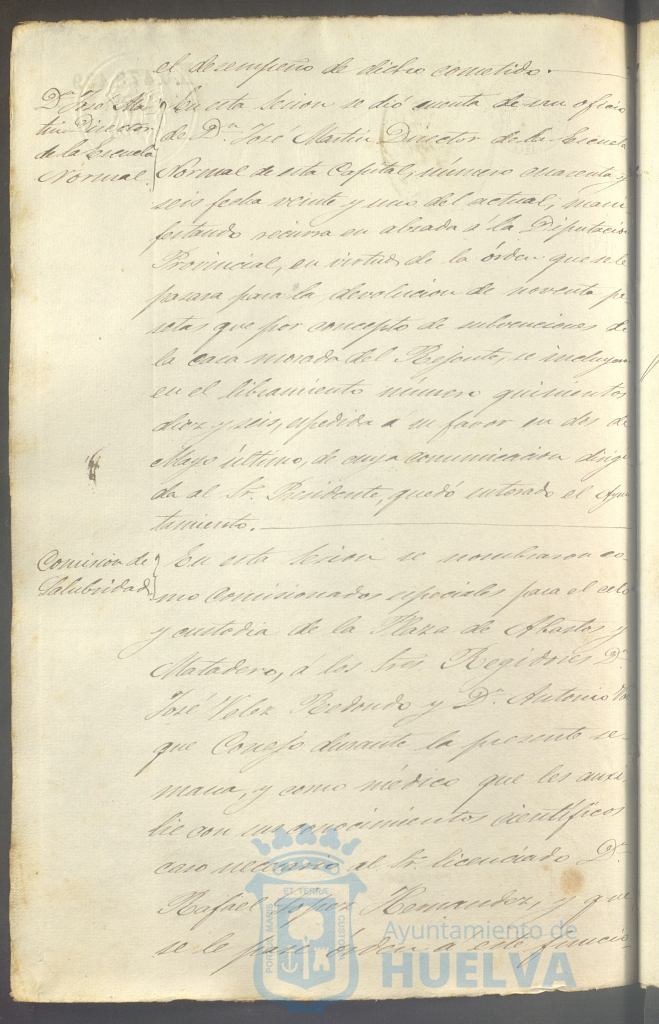 el desempeño de dicho cometido.
Dn José Mar-
tin Director
de la Escuela
Normal.
En esta sesion se dió cuenta de un oficio
de Dn. José Martin Director de la Escuela
Normal de esta Capital, número cuarenta y
seis fecha veinte y uno del actual, mani
festando recurra en alzada á la Diputacion
Provincial, en virtud de la órden que se le
pasara para la devolucion de noventa pe
setas que por concepto de subvenciones de
la casa morada del Rejente, se incluyen
en el libramiento número quinientos
diez y seis, espedida á su favor en dos de
Mayo último, de cuya comunicacion dirigi
da al Sr. Presidente, quedó enterado el Ayun
tamiento.
Comision de
Salubridad.
En esta sesion se nombraron co-
mo comisionados especiales para el celo
y custodia de la Plaza de Abastos y
Matadero, á los Sres Regidores Dn.
José Velez Redondo y Dn. Antonio
que Conejo durante la presente se-
mana, y como médico que les auxi-
lie con sus conocimientos científicos
caso necesario al Sr. licenciado Dn.
Rafael Lopez Hernandez, y que
se le pase órden á este funcio-
PORTUS MARIS ET TERRÆ CUSTODIA
Ayuntamiento de
HUELVA